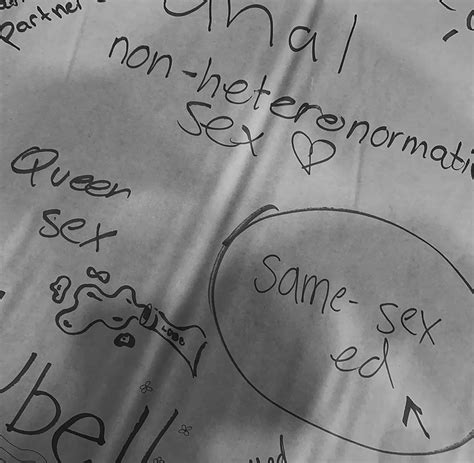 partner
anal
non-heteronormati
sex
Queer
sex
same-sex
ed
LUBE
bell